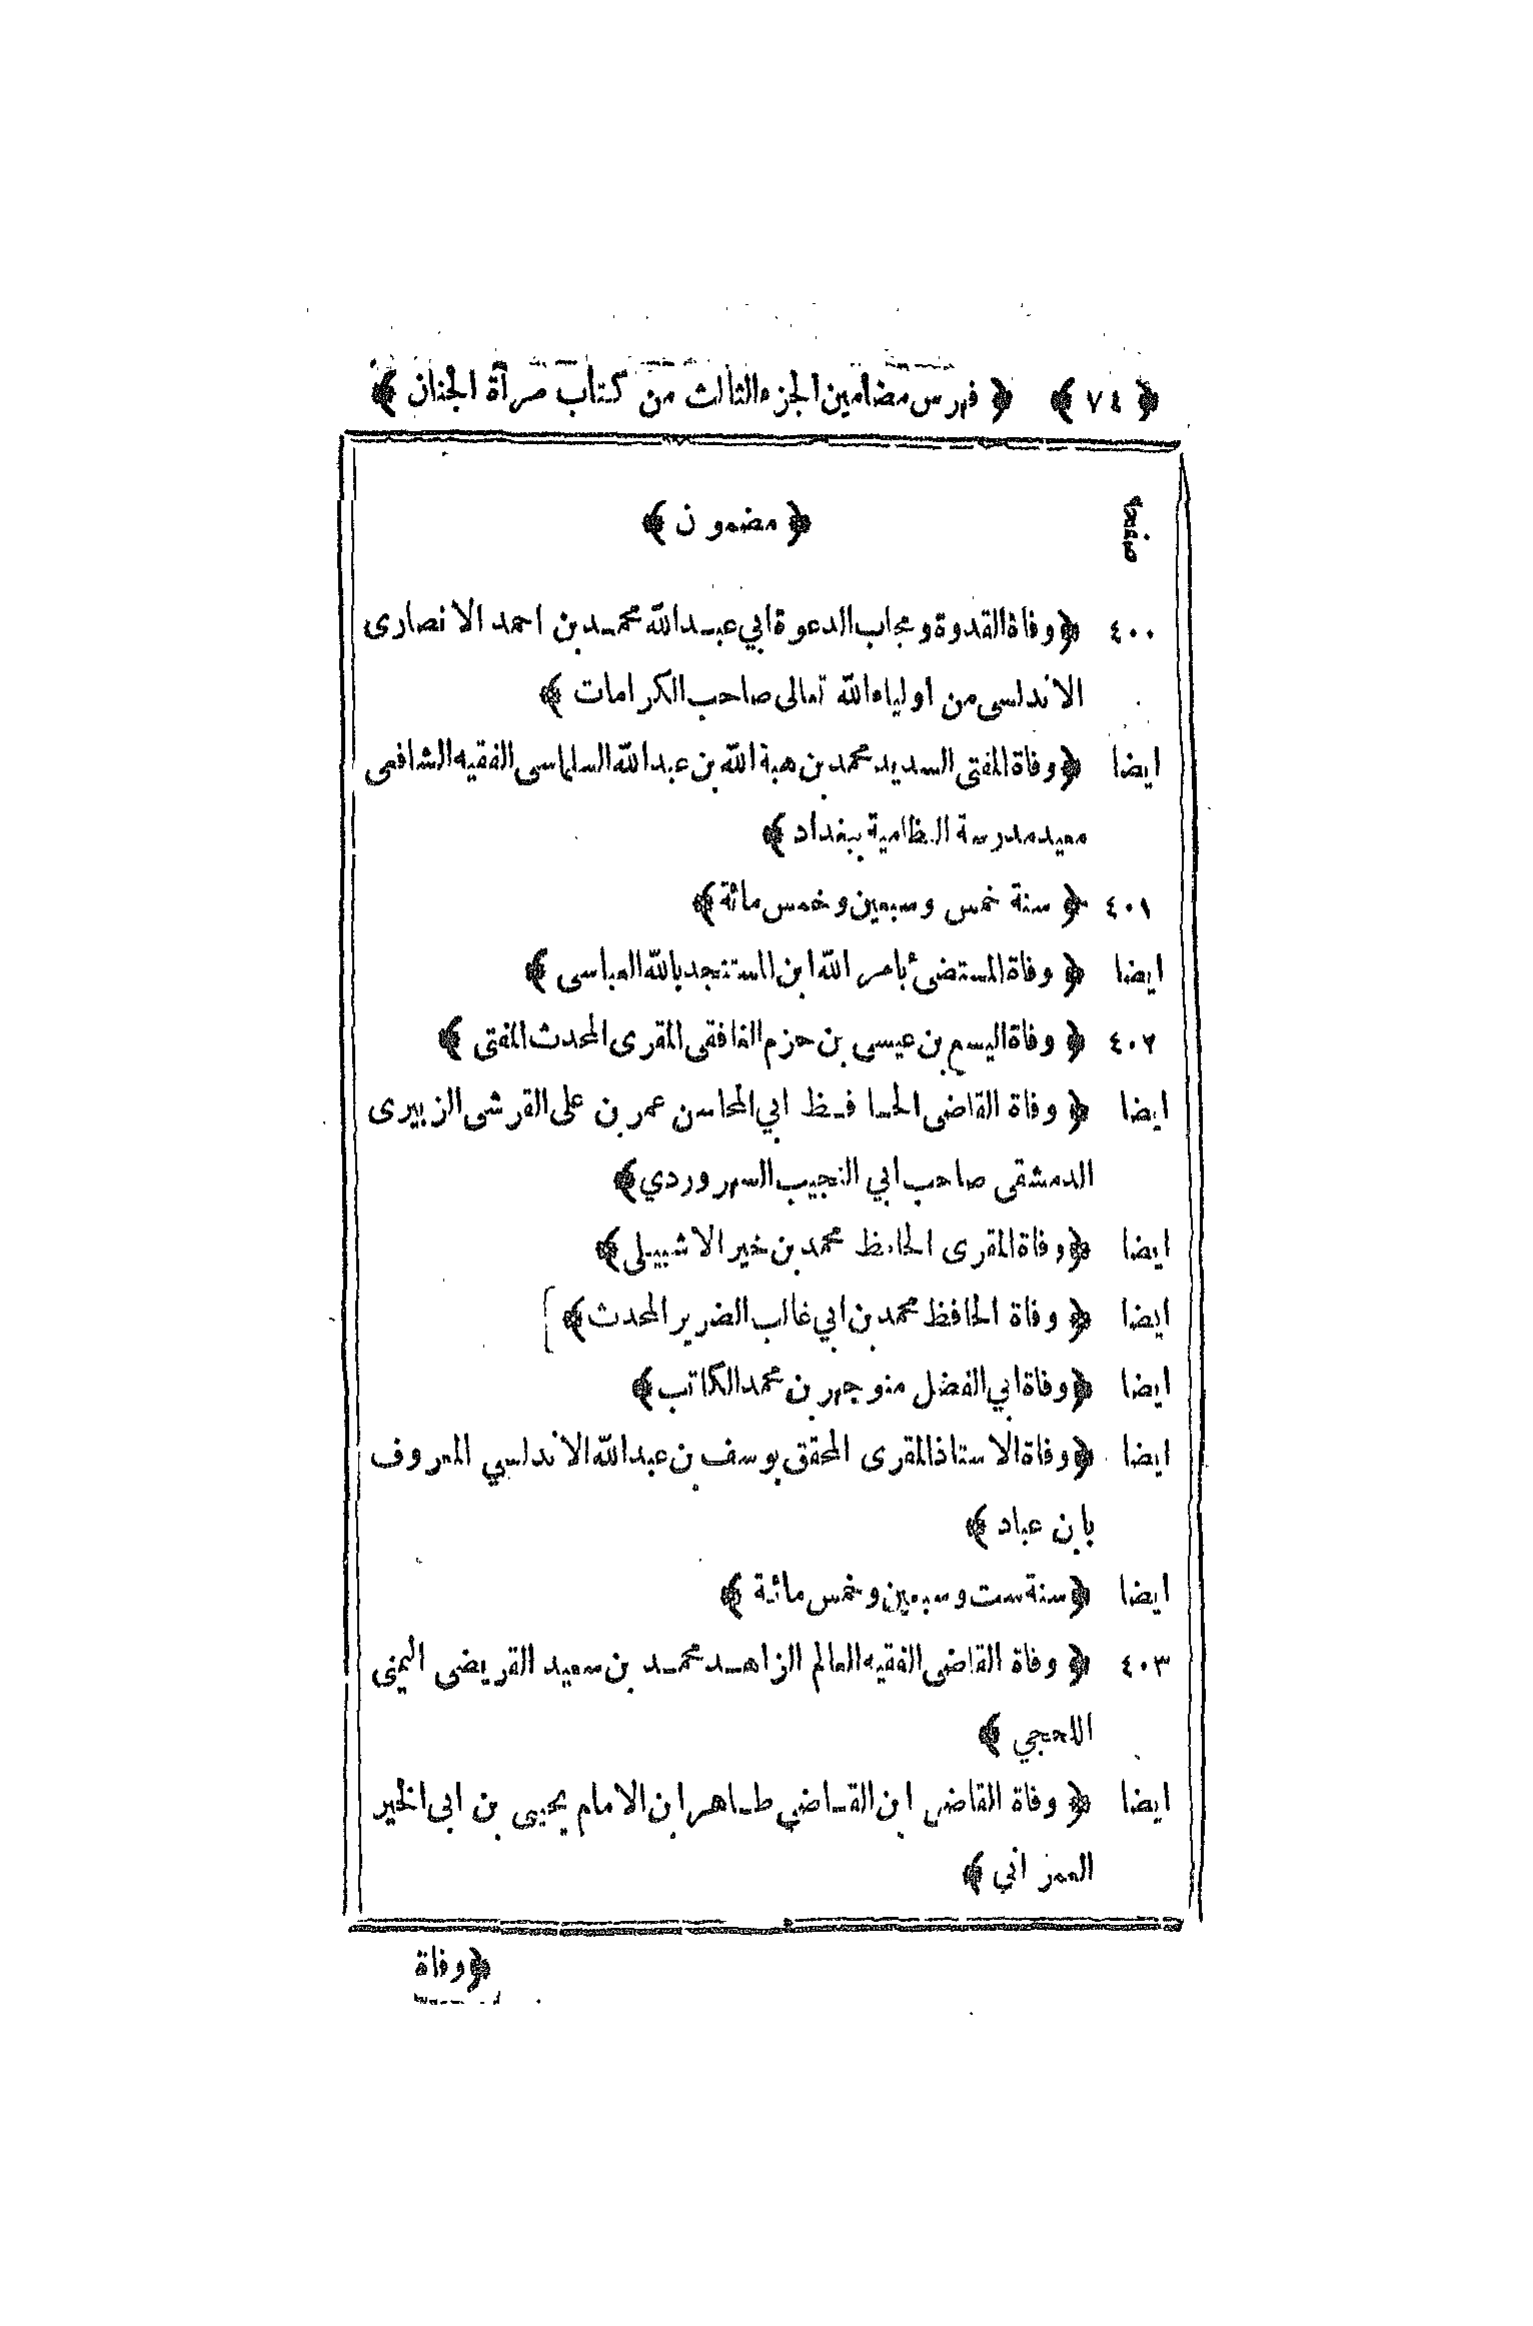 ﴿ ٧٤ ﴾ ﴿ فهرس مضامين الجزء الثالث من كتاب مرآة الجنان ﴾
صفحه ﴿ مضمون ﴾
٤٠٠ ﴿ وفاة القدوة ومجاب الدعوة ابي عبد الله محمد بن احمد الانصارى
الاندلسى من اولياء الله تعالى صاحب الكرامات ﴾
ايضا ﴿ وفاة المفتى السديد محمد بن هبة الله بن عبد الله السلماسى الفقيه الشافعى
معيد مدرسة النظامية ببغداد ﴾
٤٠١ ﴿ سنة خمس وسبعين وخمس مائة ﴾
ايضا ﴿ وفاة المستضئ بامر الله ابن المستنجد بالله العباسى ﴾
٤٠٢ ﴿ وفاة اليسع بن عيسى بن حزم الغافقى المقرى المحدث المفتى ﴾
ايضا ﴿ وفاة القاضى الحافظ ابي المحاسن عمر بن على القرشى الزبيرى
الدمشقى صاحب ابي النجيب السهروردي ﴾
ايضا ﴿ وفاة المقرى الحافظ محمد بن خير الاشبيلى ﴾
ايضا ﴿ وفاة الحافظ محمد بن ابي غالب الضرير المحدث ﴾
ايضا ﴿ وفاة ابي الفضل منوجهر بن محمد الكاتب ﴾
ايضا ﴿ وفاة الاستاذ المقرى المحقق يوسف بن عبد الله الاندلسي المعروف
بابن عباد ﴾
ايضا ﴿ سنة ست وسبعين وخمس مائة ﴾
٤٠٣ ﴿ وفاة القاضى الفقيه العالم الزاهد محمد بن سعيد القريضى اليمنى
اللحجي ﴾
ايضا ﴿ وفاة القاضى ابن القاضي طاهر ابن الامام يحيى بن ابى الخير
العمرانى ﴾
﴿ وفاة